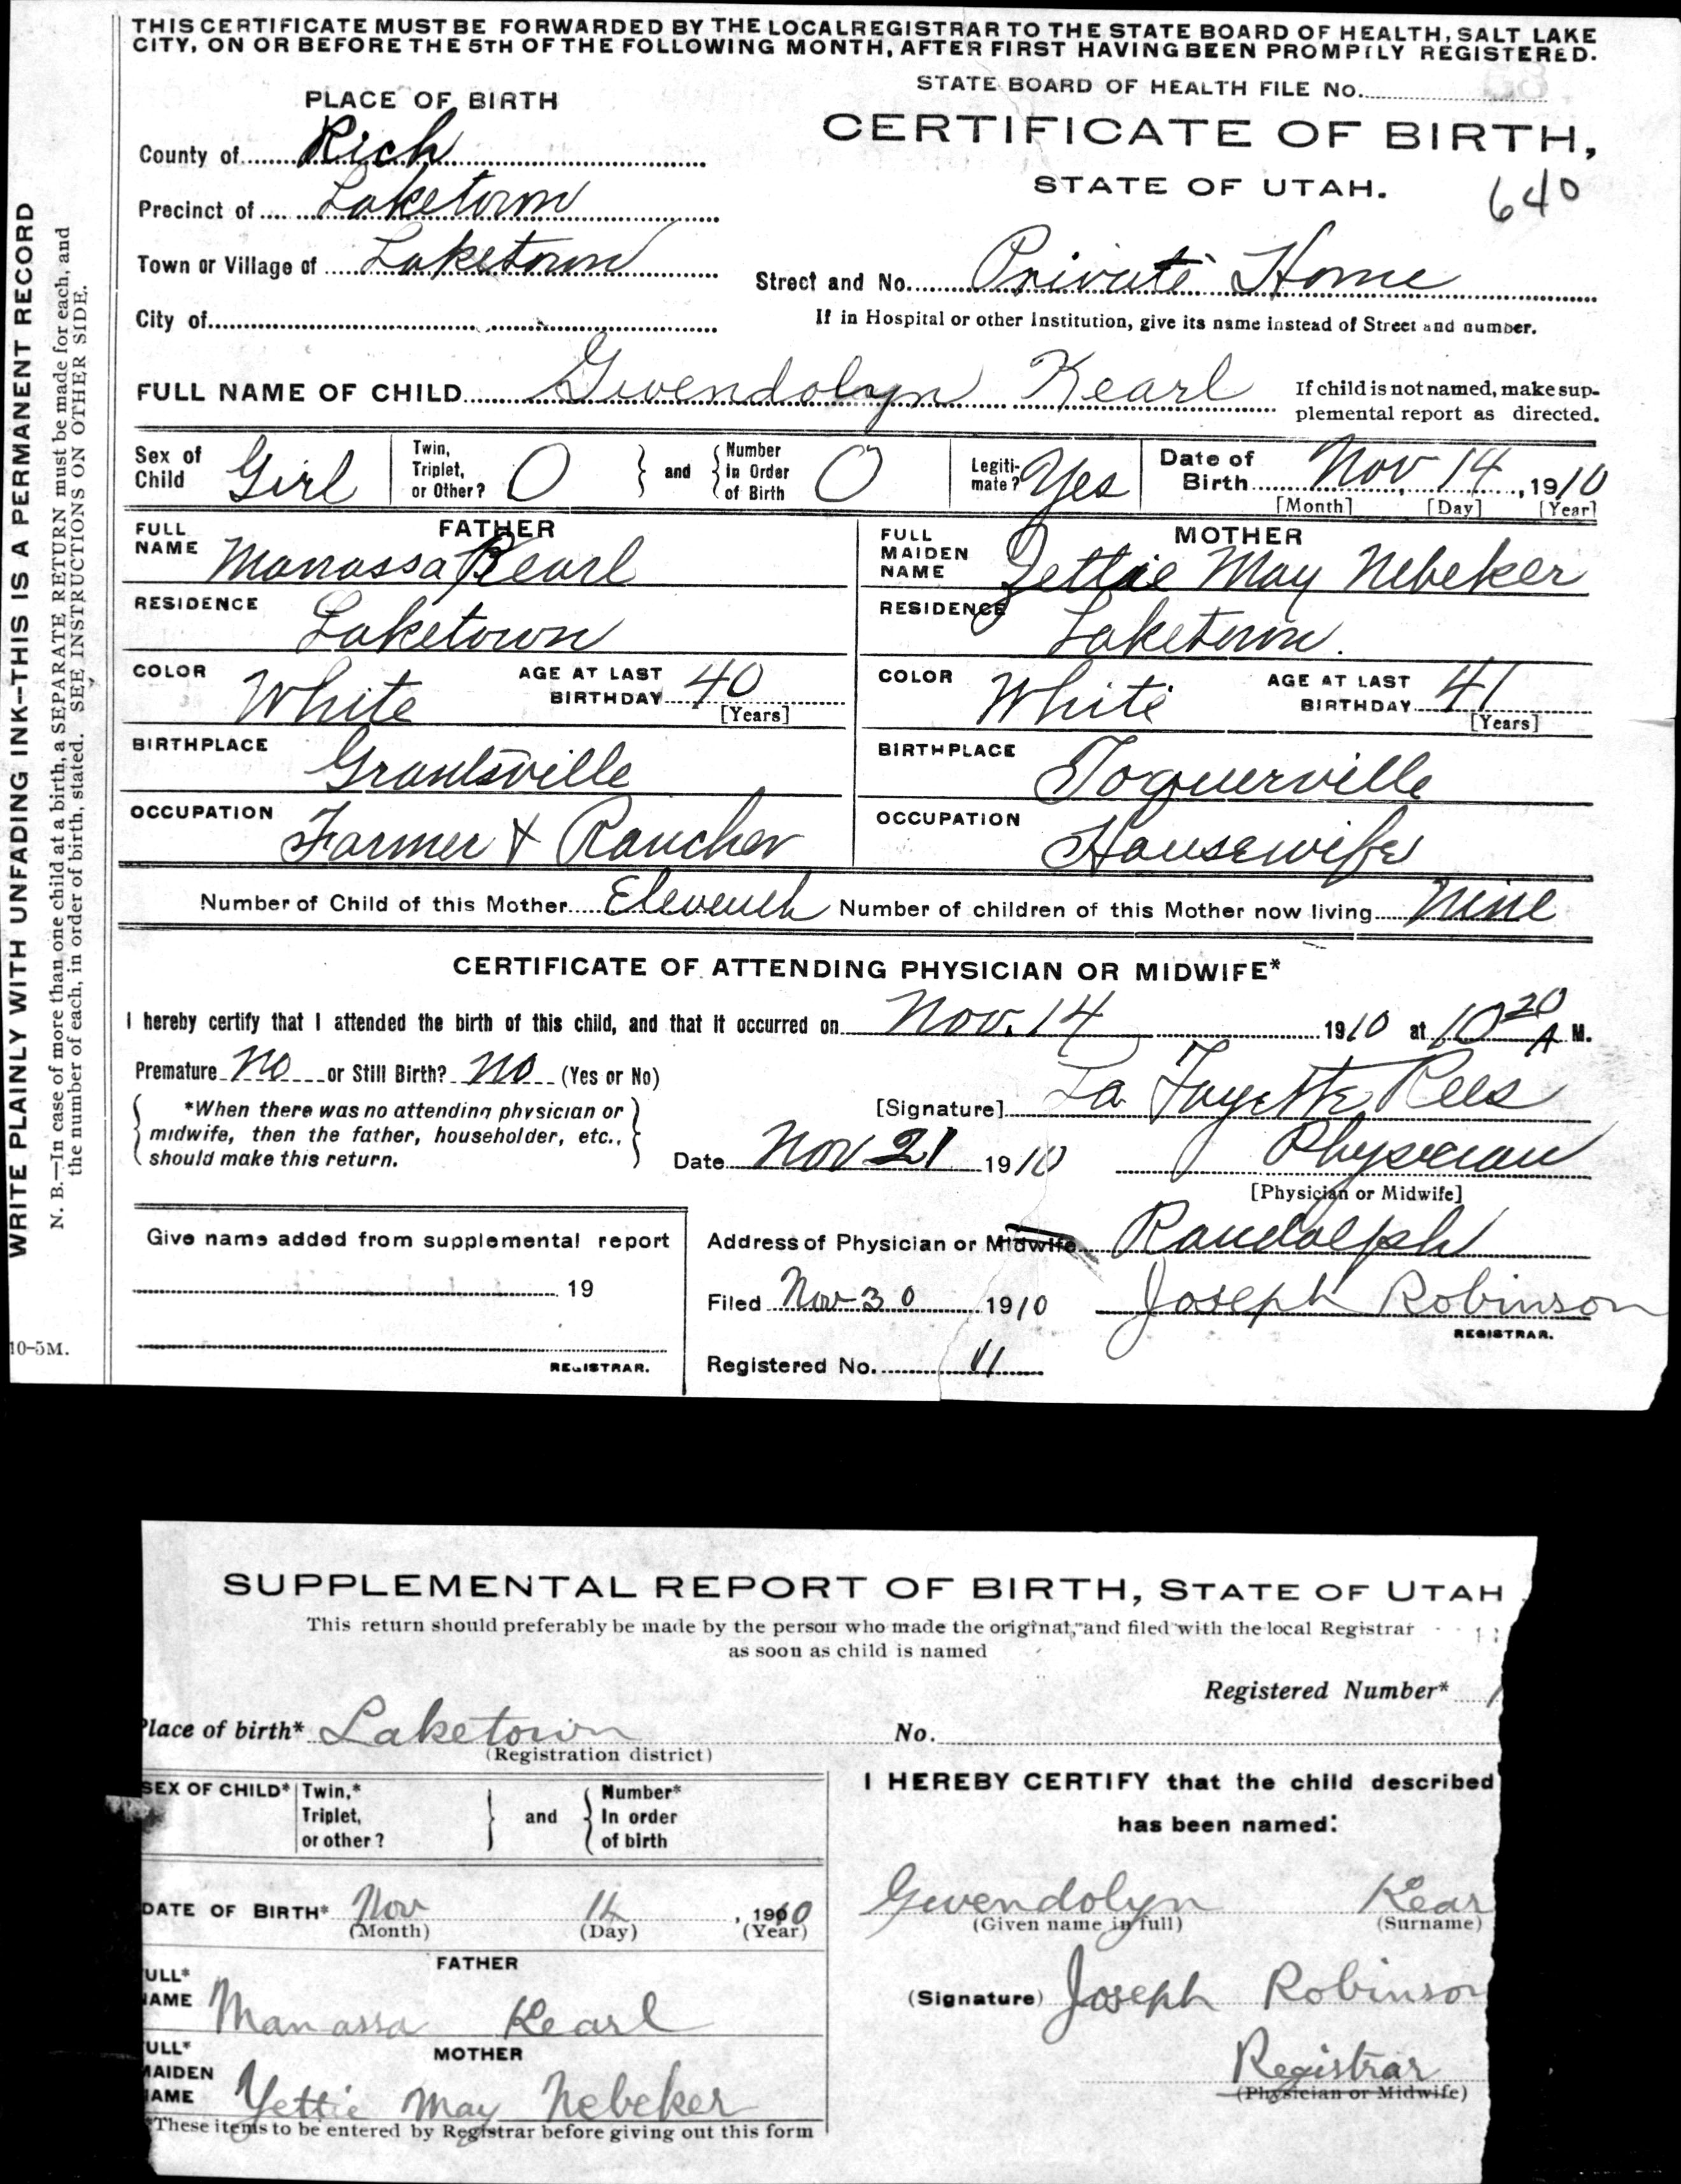 THIS CERTIFICATE MUST BE FORWARDED BY THE LOCAL REGISTRAR TO THE STATE BOARD OF HEALTH, SALT LAKE
CITY, ON OR BEFORE THE 5TH OF THE FOLLOWING MONTH, AFTER FIRST HAVING BEEN PROMPTLY REGISTERED.
STATE BOARD OF HEALTH FILE No.
PLACE OF BIRTH
CERTIFICATE OF BIRTH,
County of Rich
STATE OF UTAH.
640
Precinct of Laketown
Town or Village of Laketown
Street and No. Private Home
City of
If in Hospital or other Institution, give its name instead of Street and number.
FULL NAME OF CHILD Gwendolyn Kearl
If child is not named, make sup-
plemental report as directed.
Sex of Child Girl
Twin, Triplet, or Other? 0 and Number in Order of Birth 0
Legiti-mate? Yes
Date of Birth Nov 14, 1910
[Month] [Day] [Year]
FATHER
FULL NAME Manassa Kearl
RESIDENCE Laketown
COLOR White AGE AT LAST BIRTHDAY 40
[Years]
BIRTHPLACE Grantsville
OCCUPATION Farmer & Rancher
MOTHER
FULL MAIDEN NAME Yettie May Nebeker
RESIDENCE Laketown.
COLOR White AGE AT LAST BIRTHDAY 41
[Years]
BIRTHPLACE Toquerville
OCCUPATION Housewife
Number of Child of this Mother Eleventh Number of children of this Mother now living Nine
CERTIFICATE OF ATTENDING PHYSICIAN OR MIDWIFE*
I hereby certify that I attended the birth of this child, and that it occurred on Nov. 14 1910 at 10 20 A M.
Premature No or Still Birth? No (Yes or No)
*When there was no attending physician or
midwife, then the father, householder, etc.,
should make this return.
[Signature] La Fayette Rees
Date Nov 21 1910 Physician
[Physician or Midwife]
Give name added from supplemental report
19
REGISTRAR.
Address of Physician or Midwife Randolph
Filed Nov 30 1910 Joseph Robinson
REGISTRAR.
Registered No. 11
WRITE PLAINLY WITH UNFADING INK—THIS IS A PERMANENT RECORD
N. B.—In case of more than one child at a birth, a SEPARATE RETURN must be made for each, and
the number of each, in order of birth, stated. SEE INSTRUCTIONS ON OTHER SIDE.
10-5M.
SUPPLEMENTAL REPORT OF BIRTH, STATE OF UTAH
This return should preferably be made by the person who made the original, and filed with the local Registrar
as soon as child is named
Registered Number* 1
Place of birth* Laketown No.
(Registration district)
SEX OF CHILD* Twin,* Triplet, or other? and Number* In order of birth
I HEREBY CERTIFY that the child described
has been named:
DATE OF BIRTH* Nov 14, 1910
(Month) (Day) (Year)
Gwendolyn Kear
(Given name in full) (Surname)
FATHER
ULL* AME Manassa Kearl
(Signature) Joseph Robinson
MOTHER
ULL* MAIDEN AME Yettie May Nebeker
Registrar
(Physician or Midwife)
*These items to be entered by Registrar before giving out this form